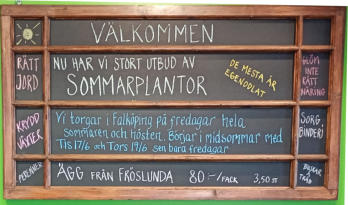 VÄLKOMMEN
RÄTT
JORD
NU HAR VI STORT UTBUD AV
SOMMARPLANTOR
DE MESTA ÄR
EGENODLAT
GLÖM
INTE
RÄTT
NÄRING
KRYDD
VÄXTER
Vi torgar i Falköping på fredagar hela
sommaren och hösten. Börjar i midsommar med
Tis 17/6 och Tors 19/6 sen bara fredagar
SORG
BINDERI
PERENNER
ÄGG FRÅN FRÖSLUNDA 80:-/FACK 3,50 ST
BUSKAR
& TRÄD